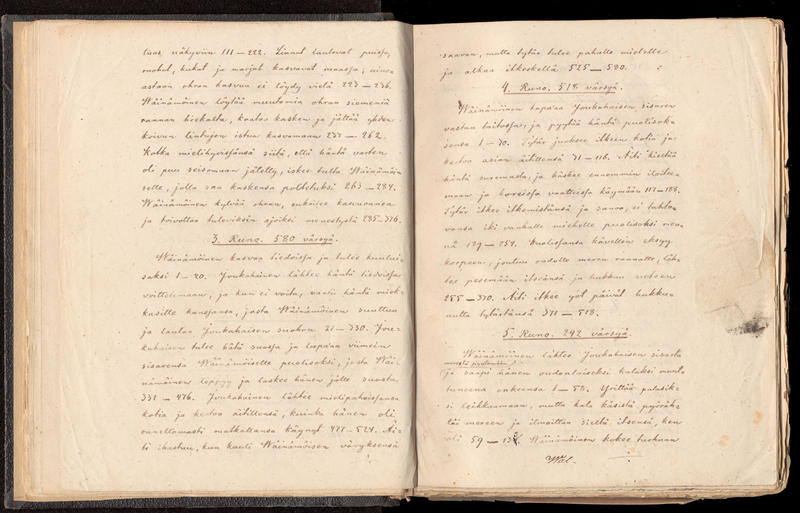 taas näkyviin 111 — 222. Linnut laulavat puissa,
ruohot, kukat ja marjat kasvavat maassa,
ohran kasvua ei löydy vielä 223 — 236.
Wäinämöinen löytää muutamia ohran siemeniä
rannan hiekalta, kaataa kasken ja jättää yhden
koivun lintujen istua kasvamaan 237 — 262.
Kokko mielihyvissänsä siitä, että häntä varten
oli puu seisomaan jätetty, iskee tulta Wäinämöi-
selle, jolla saa kaskensa poltetuksi 263 — 284.
Wäinämöinen kylvää ohran, rukoilee kasvuonnea
ja toivottaa tuleviksin ajoiksi menestystä 285—376.
3. Runo. 580 värsyä.
Wäinämöinen kasvaa tiedoissa ja tulee kuului-
saksi 1 — 20. Joukahainen lähtee häntä tiedoissa
voittelemaan, ja kun ei voita, vaatii häntä miek-
kasille kanssansa, josta Wäinämöinen suuttuu
ja laulaa Joukahaisen suohon 21 — 330. Jou-
kahainen tulee hätä suossa ja lupaa viimein
sisarensa Wäinämöiselle puolisoksi, josta Wäi-
nämöinen leppyy ja laskee hänen jälle suosta
331 — 476. Joukahainen lähtee mielipahoissansa
kotia ja kertoo äitillensä, kuinka hänen oli
onnettomasti matkallansa käynyt 477 — 524. Äi-
ti ihastuu, kun kuuli Wäinämöisen vävyksensä
saavan, mutta tytär tulee pahalle mielelle
ja alkaa itkeskellä 525 — 580.
4. Runo. 518 värsyä.
Wäinämöinen tapaa Joukahaisen sisaren
vastan taitossa, ja pyytää häntä puolisok-
sensa 1 — 30. Tytär juoksee itkien kotia ja
kertoo asian äitillensä 31 — 116. Äiti kieltää
häntä suremasta, ja käskee ennemmin iloitse-
maan ja koreissa vaatteissa käymään 117 — 188.
Tytär itkee itkemistänsä ja sanoo, ei tahto-
vansa iki vanhalle miehelle puolisoksi men-
nä 189 — 254. Huolissansa kävellen eksyy
korpeen, joutuu oudolle meren rannalle, läh-
tee pesemään itseänsä ja hukkuu veteen
255 — 370. Äiti itkee yöt päivät hukkun-
utta tytärtänsä 371 — 518.
5. Runo. 242 värsyä
Wäinämöinen lähtee Joukahaisen sisarta
merestä pyytämään
ja saapi hänen oudonlaiseksi kalaksi muut-
tuneena onkeensa 1 — 58. Yrittää palasik-
si leikkaamaan, mutta kala käsistä pyöräh-
tää mereen ja ilmoittaa sieltä itsensä, ken
oli 59 — 133. Wäinämöinen kokee turhaan
Wäl.